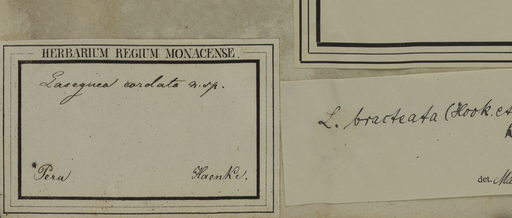 HERBARIUM REGIUM MONACENSE.
Laseguea cordata n. sp.
Peru Haenke.
L. bracteata (Hook. et
det.